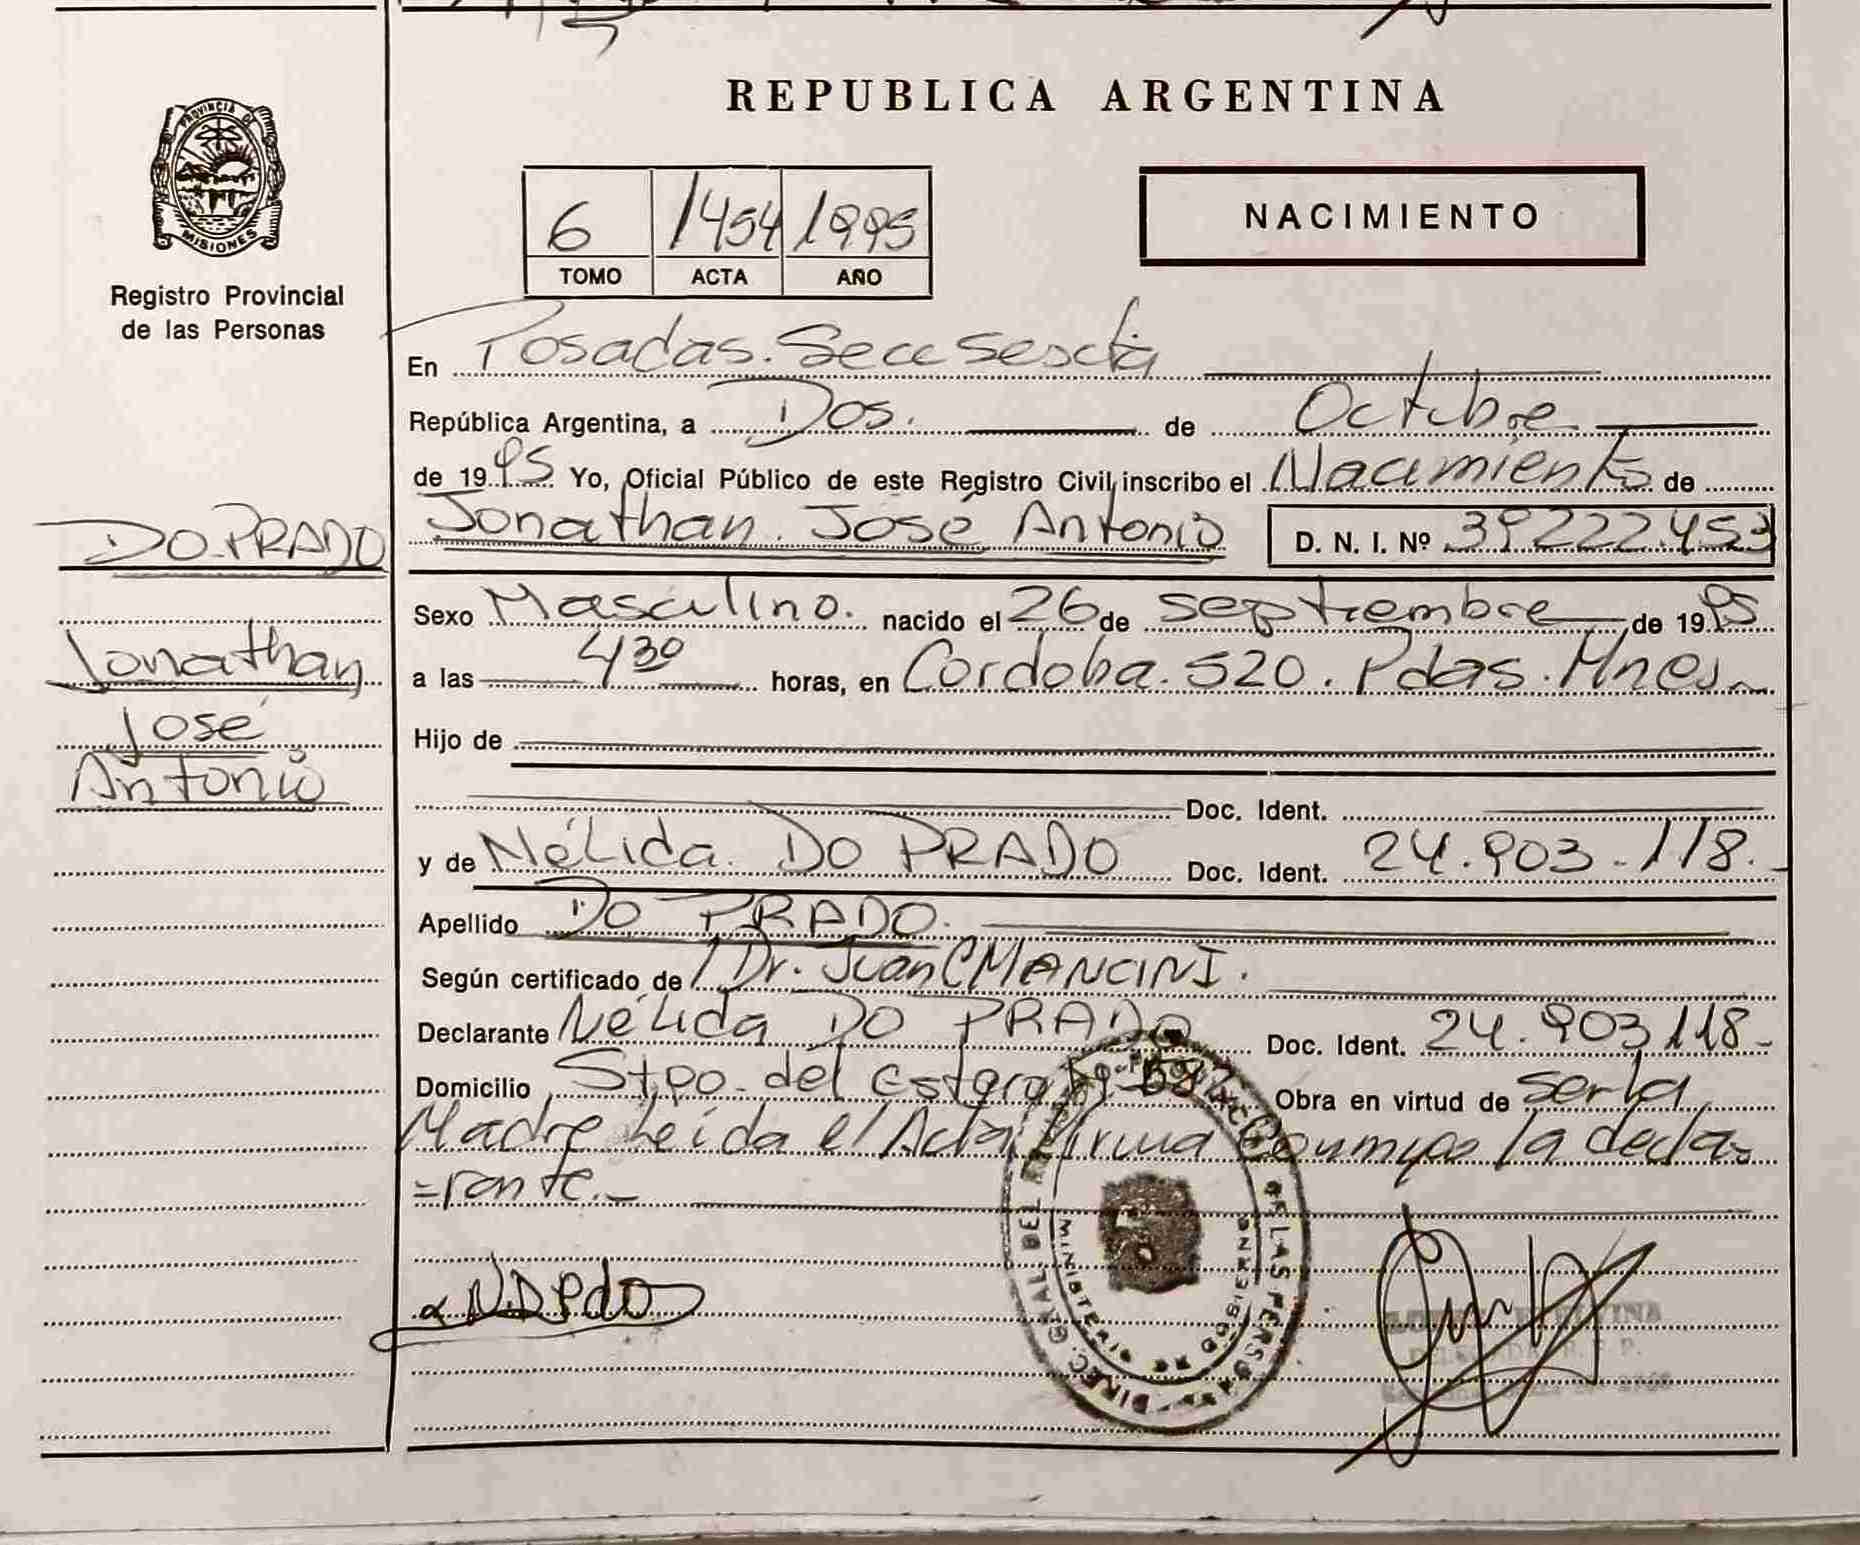 PROVINCIA DE
MISIONES
Registro Provincial
de las Personas
REPUBLICA ARGENTINA
6 1454 1995
TOMO ACTA AÑO
NACIMIENTO
En Posadas. Secc sexta
República Argentina, a Dos. de Octubre
de 1995 Yo, Oficial Público de este Registro Civil inscribo el Nacimiento de
DO PRADO
Jonathan José Antonio D. N. I. Nº 39222.453
Sexo Masculino. nacido el 26 de septiembre de 1995
Jonathan
José
Antonio
a las 4 30 horas, en Cordoba. 520. Pdas. Mnes.
Hijo de
Doc. Ident.
y de Nélida. DO PRADO Doc. Ident. 24.903.118.
Apellido DO PRADO.
Según certificado de Dr. Juan C MANCINI.
Declarante Nélida DO PRADO Doc. Ident. 24.903.118-
Domicilio Stgo. del Estero Obra en virtud de ser la
Madre Leida el Acta Firma Conmigo la decla
=rante.-
DIREC. GRAL DEL DE LAS PERSONAS
MINISTERIO DE GOBIERNO
N.D.Pdo